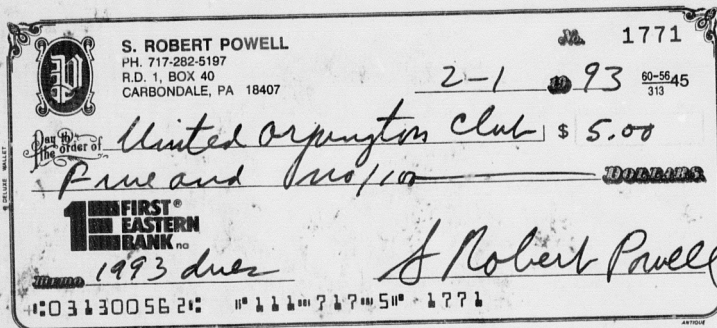 S. ROBERT POWELL No. 1771
PH. 717-282-5197
R.D. 1, BOX 40
CARBONDALE, PA 18407
2-1 19 93 60-5645
313
Pay to the order of United Orpington Club $ 5.00
Five and no/100 DOLLARS
1 FIRST® EASTERN BANK na
Memo 1993 dues S Robert Powell
⑆031300562⑆ ⑈111⑉717⑉5⑈ 1771
DELUXE WALLET
ANTIQUE
P